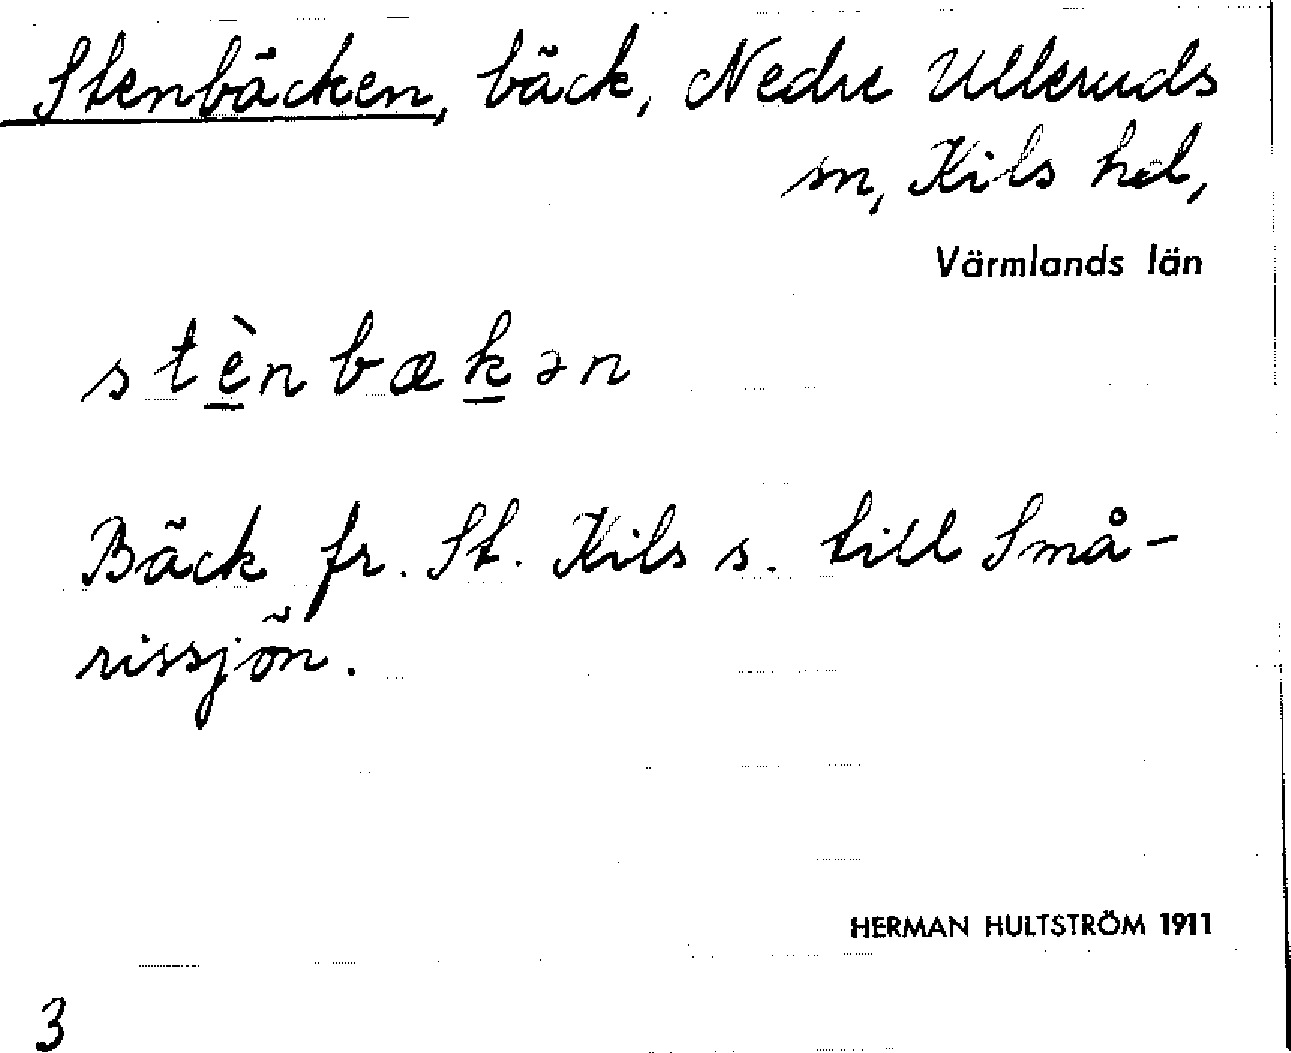 Stenbäcken, bäck, Nedre Ulleruds
sn, Kils hd,
Värmlands län
stènbækən
Bäck fr. St. Kils s. till Små-
rissjön.
HERMAN HULTSTRÖM 1911
3